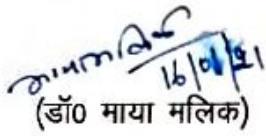 16/01/21
(डॉ0 माया मलिक)